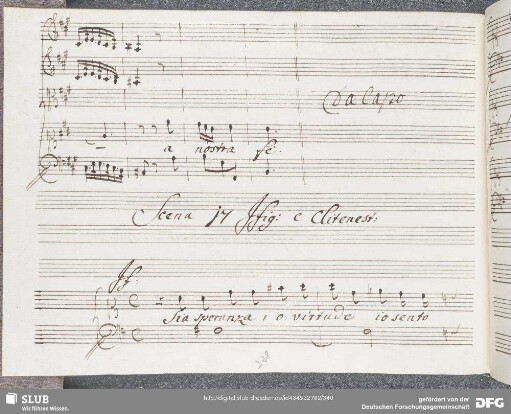 Da Capo
a nostra fè.
Scena 17 Ifig: e Clitenest:
If:
Sia speranza, o virtude io sento
SLUB
Wir führen Wissen.
gefördert von der
Deutschen Forschungsgemeinschaft
DFG